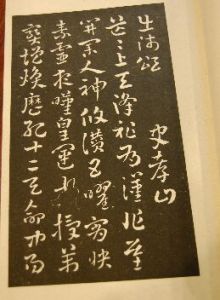 出師頌　史孝山
茫々上天降祚為漢作基
開業人神攸讚五曜霄映
素靈夜歎皇運來授萬
寶增煥歷紀十二天命中易